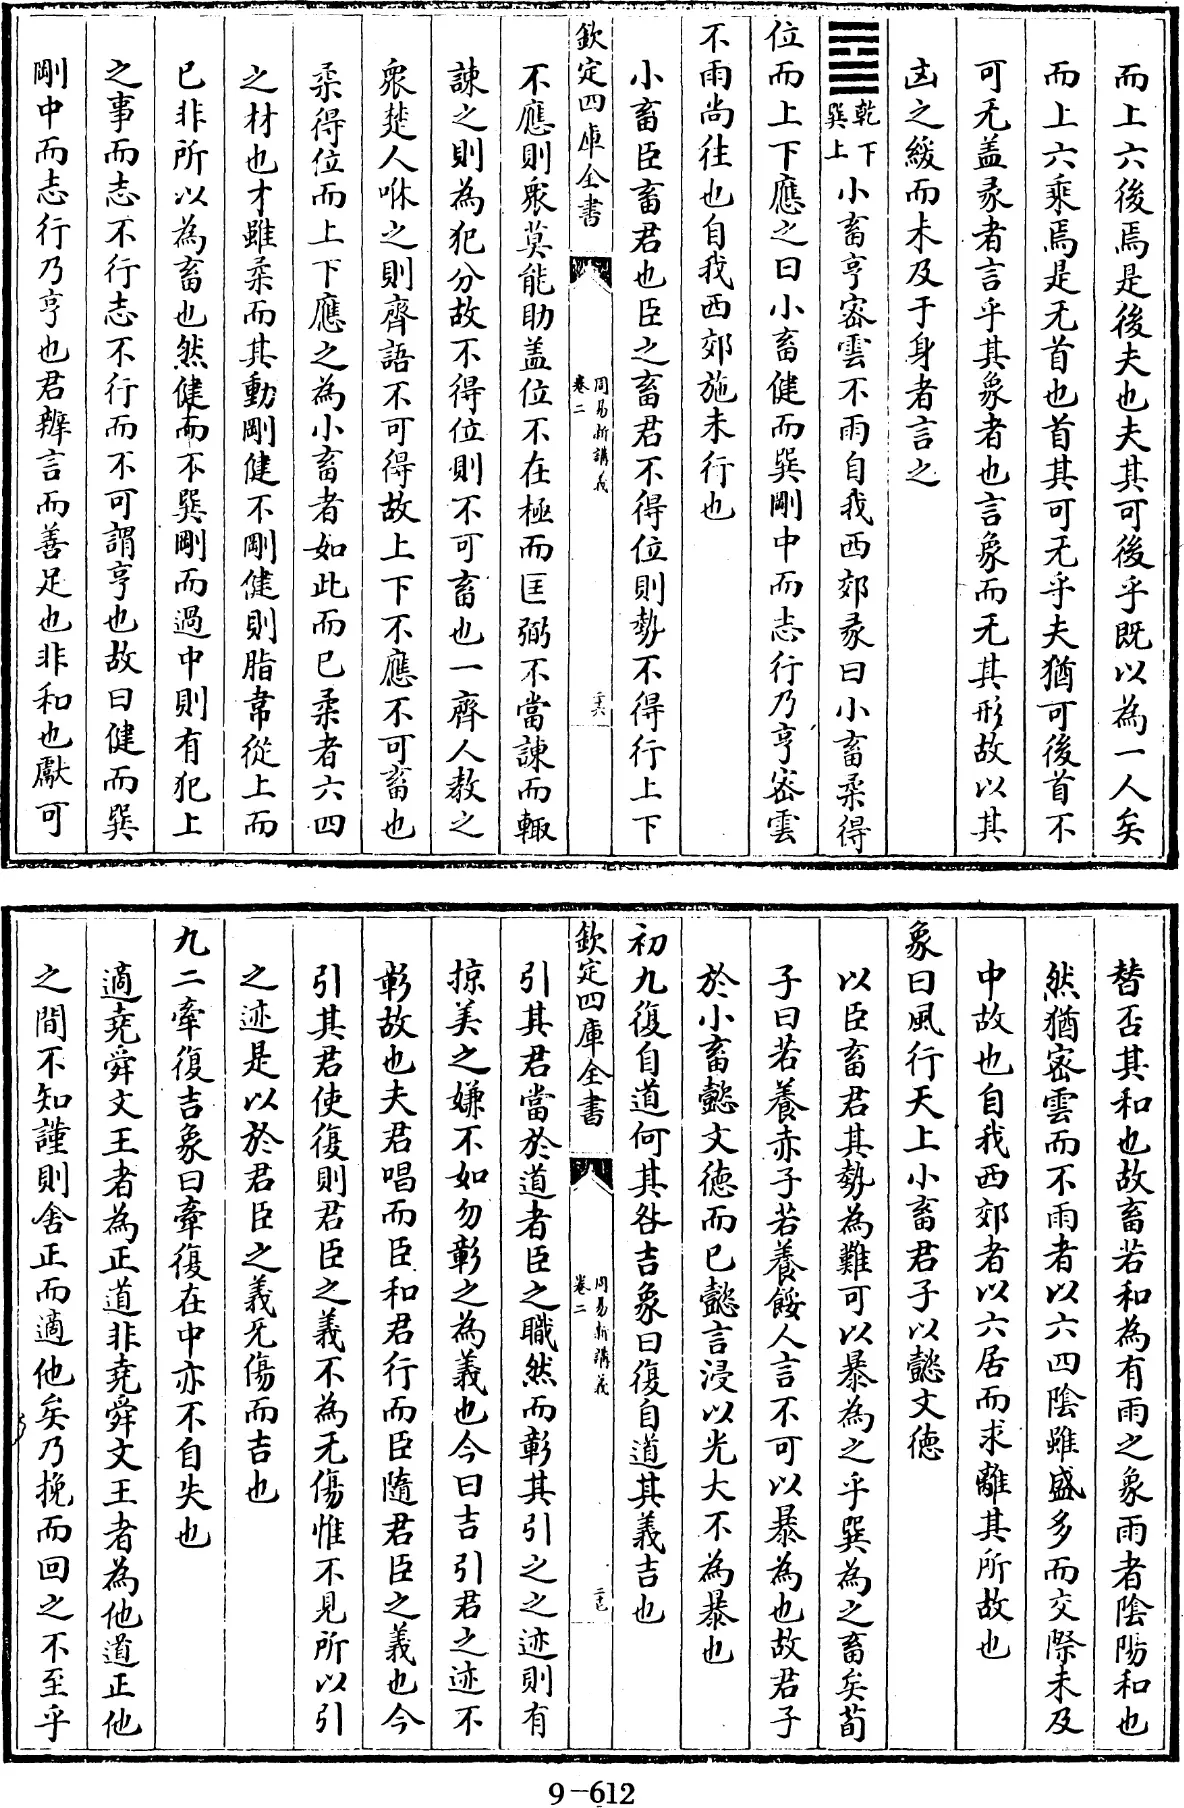 而上六後焉是後夫也夫其可後乎既以為一人矣
而上六乘焉是无首也首其可无乎夫猶可後首不
可无盖彖者言乎其象者也言象而无其形故以其
凶之緩而未及于身者言之
乾下巽上小畜亨密雲不雨自我西郊彖曰小畜柔得
位而上下應之曰小畜健而巽剛中而志行乃亨密雲
不雨尚往也自我西郊施未行也
小畜臣畜君也臣之畜君不得位則勢不得行上下
欽定四庫全書
周易新講義
卷二
二十六
不應則衆莫能助盖位不在極而匡弼不當諫而輙
諫之則為犯分故不得位則不可畜也一齊人教之
衆楚人咻之則齊語不可得故上下不應不可畜也
柔得位而上下應之為小畜者如此而已柔者六四
之材也才雖柔而其動剛健不剛健則脂韋從上而
已非所以為畜也然健而不巽剛而過中則有犯上
之事而志不行志不行而不可謂亨也故曰健而巽
剛中而志行乃亨也君辨言而善足也非和也獻可
替否其和也故畜若和為有雨之象雨者陰陽和也
然猶密雲而不雨者以六四陰雖盛多而交際未及
中故也自我西郊者以六居而求離其所故也
象曰風行天上小畜君子以懿文徳
以臣畜君其勢為難可以暴為之乎巽為之畜矣荀
子曰若養赤子若養餧人言不可以暴為也故君子
於小畜懿文徳而已懿言浸以光大不為暴也
初九復自道何其咎吉象曰復自道其義吉也
欽定四庫全書
周易新講義
卷二
二十七
引其君當於道者臣之職然而彰其引之之迹則有
掠美之嫌不如勿彰之為義也今曰吉引君之迹不
彰故也夫君唱而臣和君行而臣隨君臣之義也今
引其君使復則君臣之義不為无傷惟不見所以引
之迹是以於君臣之義无傷而吉也
九二牽復吉象曰牽復在中亦不自失也
適堯舜文王者為正道非堯舜文王者為他道正他
之間不知謹則舍正而適他矣乃挽而回之不至乎
9-612